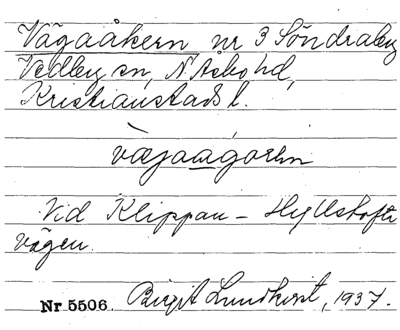 Vägaåkern nr 3 Söndraby
Vedby sn, N. Åsbo hd,
Kristianstads l.
Vid Klippan - Hyllstofta
vägen.
Nr 5506. Birgit Lundkvist, 1937.